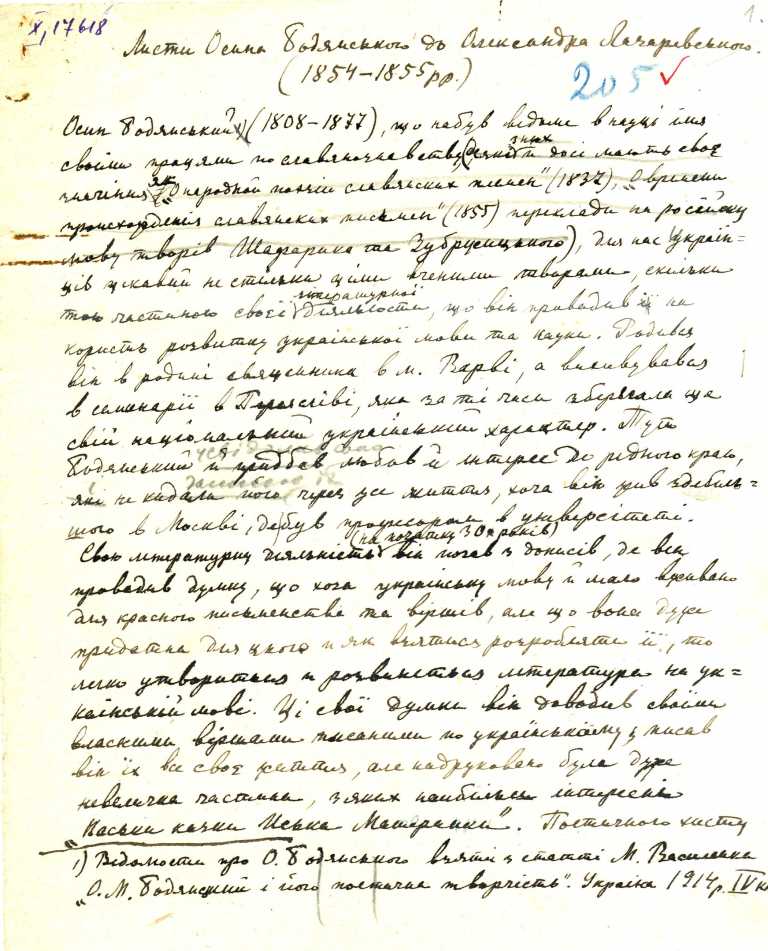 X, 17618
1.
Листи Осипа Бодянського до Олександра Лазаревського.
(1854–1855 рр.)
205
Осип Бодянський¹) (1808–1877), що набув відоме в науці імя
своїми працями по славянознавству, з яких й досі мають своє
значіння як „О народной поэзіи славянских племен" (1837), „О времени
происхожденія славянских письмен" (1855) переклади на російську
мову творів Шафарика та Зубрицького), для нас Україн=
ців цікавий не стільки ціми вченими творами, скільки
тою частиною своєї літературної діяльности, що він провадив її на
користь розвитку української мови та науки. Родився
він в родині священника в м. Варві, а виховувався
в семінарії в Переяславі, яка за ті часи зберігала ще
свій національний український характер. Тут
Бодянський й придбав любов й інтерес до рідного краю,
які не кидали його через усе життя, хоча він жив здебіль=
шого в Москві, де був професором в університеті.
Свою літературну діяльність (на початку 30х років) він почав з дописів, де він
провадив думку, що хоча українську мову й мало вживано
для красного письменства та віршів, але що вона дуже
придатна для цього и як взятися розробляти її, то
легко утвориться и розвинеться література на ук=
раїнській мові. Ці свої думки він доводив своїми
власними віршами писаними по українському, писав
він їх все своє життя, але надруковано була дуже
невеличка частина, з яких найбільш інтересні
„Наськи казки Иська Материнки". Поетичного хисту
1) Відомости про О. Бодянського взяти з статті М. Василенка
„О. М. Бодянський і його поетична творчість". Україна 1914 р. IV кн